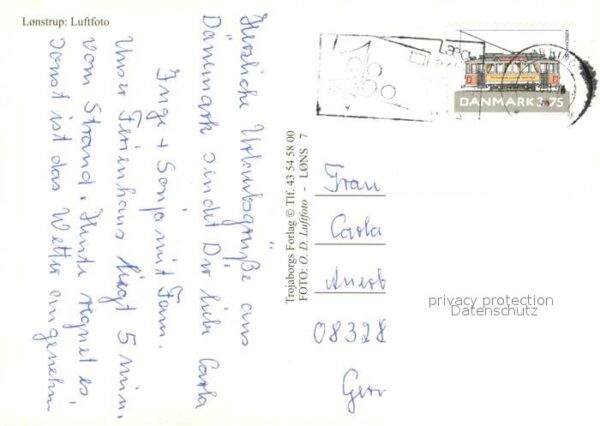 Lønstrup: Luftfoto
Herzliche Urlaubsgrüße aus
Dänemark sendet Dir liebe Carla
Inge + Sonja mit Fam.
Unser Ferienhaus liegt 5 min.
vom Strand. Heute regnet es,
sonst ist das Wetter angenehm
Trojaborgs Forlag © Tlf. 43 54 58 00
FOTO: O. D. Luftfoto - LØNS 7
DANMARK 3.75
Frau
Carla
Auerb
08328
privacy protection
Datenschutz